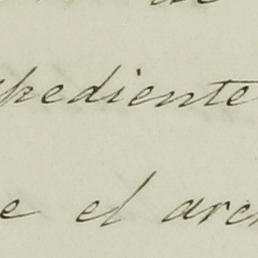 de
pediente
e el arc